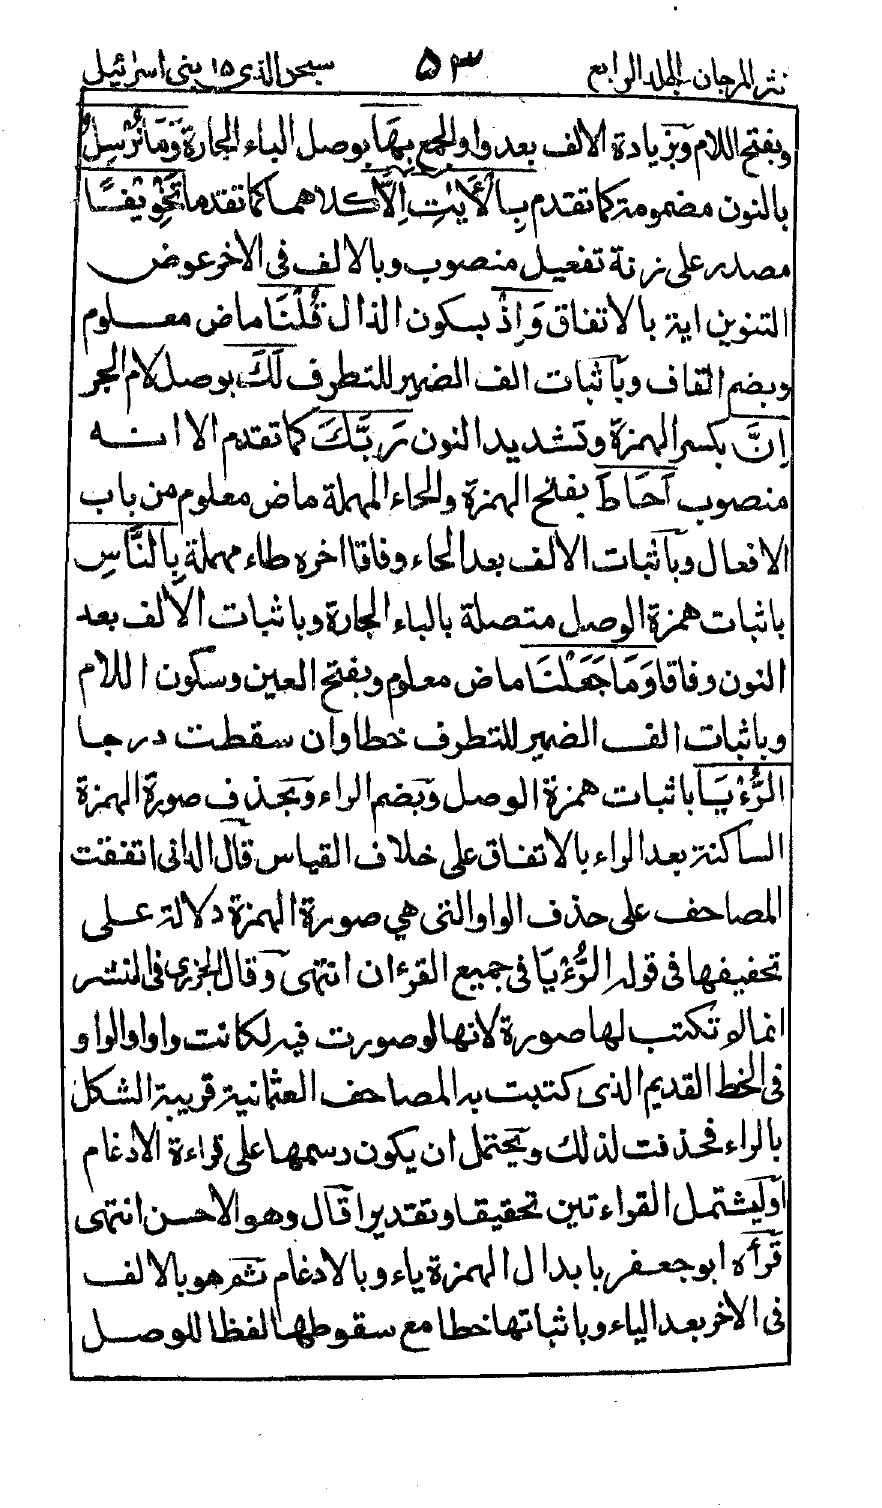 نثر المرجان الجلد الرابع ٥٣ سبحن الذى ١٥ بنى اسرائيل
وبفتح اللام وبزيادة الالف بعد واو الجمع بِهَا بوصل الباء الجارة وَمَا نُرْسِلُ
بالنون مضمومة كما تقدم بِالْأَيٰتِ اِلَّا كلاهما كما تقدما تَخْوِيْفًا
مصدر على زنة تفعيل منصوب وبالالف فى الاخر عوض
التنوين اية بالاتفاق وَاِذْ بسكون الذال قُلْنَا ماض معلوم
وبضم القاف وباثبات الف الضمير للتطرف لَكَ بوصل لام الجر
اِنَّ بكسر الهمزة وتشديد النون رَبَّكَ كما تقدم الا انه
منصوب اَحَاطَ بفتح الهمزة والحاء المهملة ماض معلوم من باب
الافعال وباثبات الالف بعد الحاء وفاقا اخره طاء مهملة بِالنَّاسِ
باثبات همزة الوصل متصلة بالباء الجارة وباثبات الالف بعد
النون وفاقا وَمَا جَعَلْنَا ماض معلوم وبفتح العين وسكون اللام
وباثبات الف الضمير للتطرف خطا وان سقطت درجا
الرُّءْيَا باثبات همزة الوصل وبضم الراء وبحذف صورة الهمزة
الساكنة بعد الراء بالاتفاق على خلاف القياس قال الدانى اتفقت
المصاحف على حذف الواو التى هي صورة الهمزة دلالة على
تخفيفها فى قوله الرُّءْيَا فى جميع القرءان انتهى وقال الجزرى فى النشر
انما لم تكتب لها صورة لانها لو صورت فيه لكانت واوا والواو
فى الخط القديم الذى كتبت به المصاحف العثمانية قريبة الشكل
بالراء فحذفت لذلك ويحتمل ان يكون رسمها على قراءة الادغام
او ليشتمل القراءتين تحقيقا وتقديرا قال وهو الاحسن انتهى
قرأه ابو جعفر بابدال الهمزة ياء وبالادغام ثم هو بالالف
فى الاخر بعد الياء وباثباتها خطا مع سقوطها لفظا للوصل